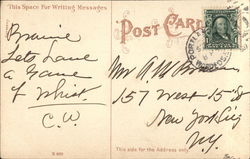 This Space For Writing Messages
POST CARD
Brainie
Lets Have
a Game
of Whist
C.W.
PORTLAND
Mr A.W.
157 West 15 St
New York City
N.Y.
This side for the Address only